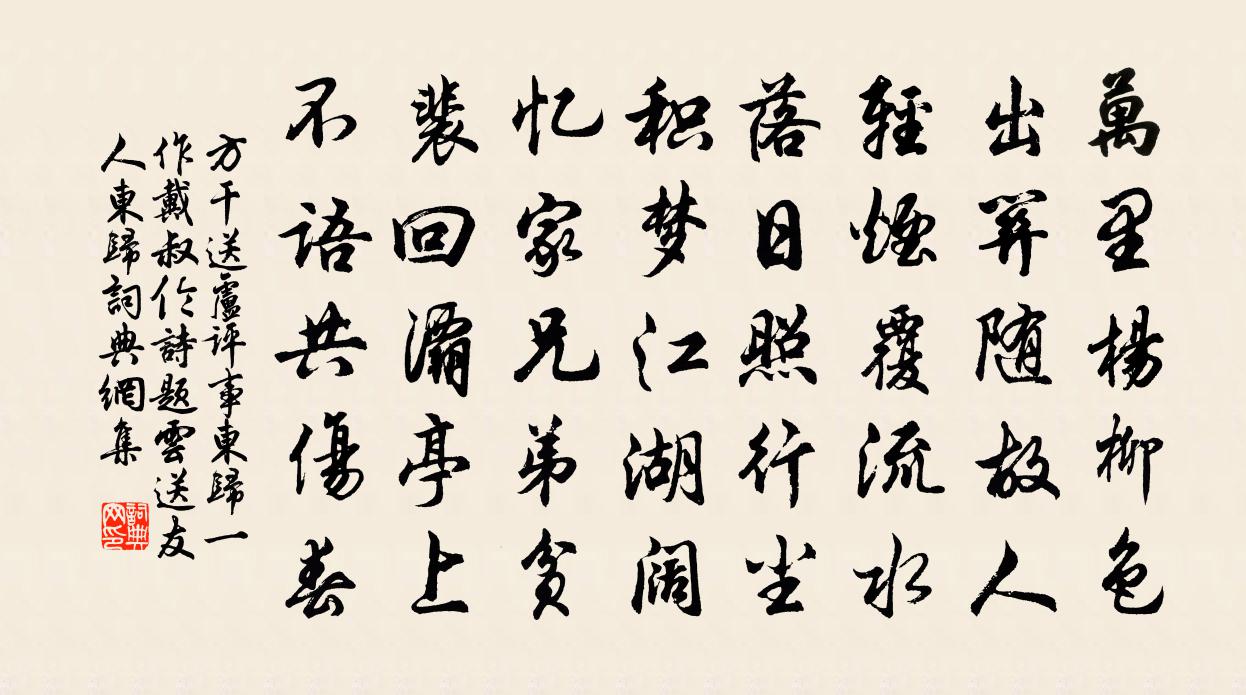 萬里楊柳色
出關随故人
輕煙覆流水
落日照行尘
积梦江湖阔
忆家兄弟贫
裴回灞亭上
不語共傷春
方干送盧評事東歸一
作戴叔伦詩題雲送友
人東歸詞典網集
詞典网印